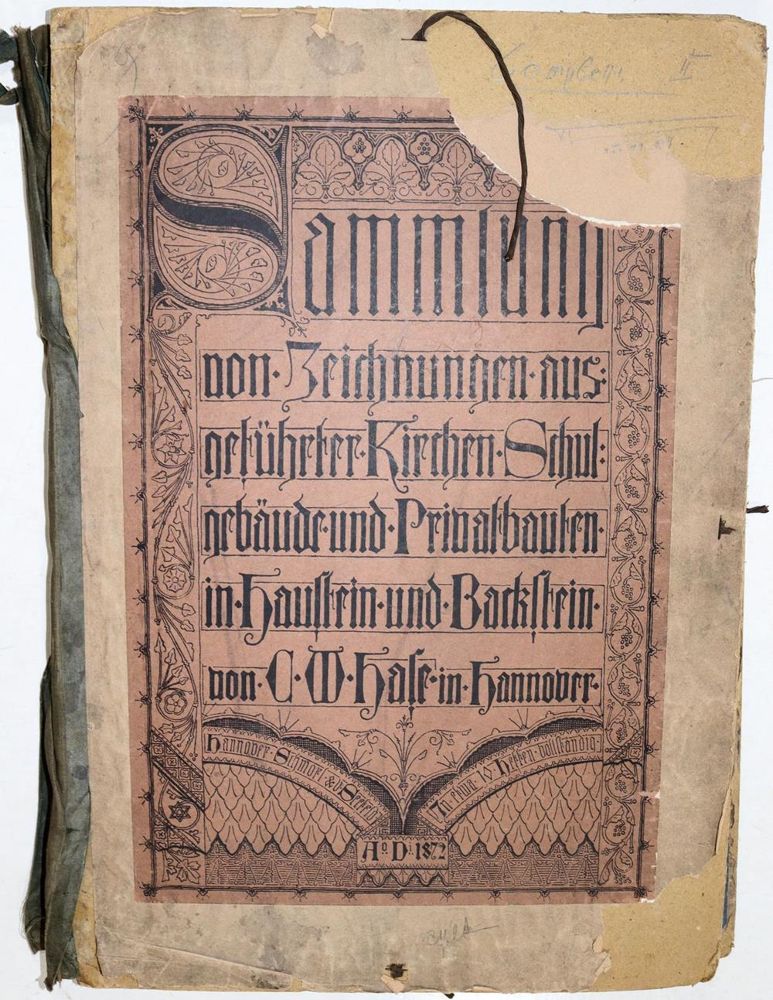 Sammlung
von · Zeichnungen · aus:
geführter · Kirchen · Schul:
gebäude · und · Privatbauten ·
in · Haustein · und · Backstein ·
von · C · W · Hase · in · Hannover ·
Hannover · Schmorl & v. Seefeld
In etwa 10 Heften · vollständig ·
Aº Dⁱ 1872
II